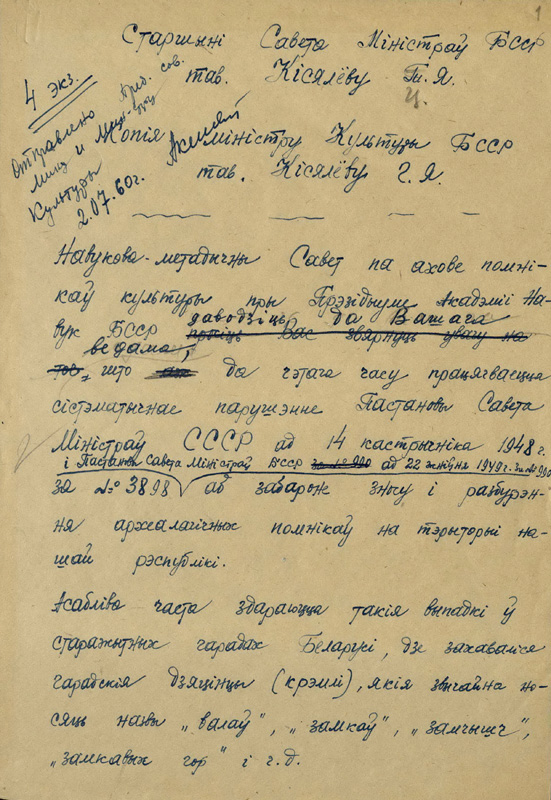 1
Старшыні Савета Міністраў БССР
тав. Кісялёву Т. Я.
Ц.
4 экз.
Отправлено Пред. сов.
мин и Мин-ру
Культуры
2.07.60г.
Копія Міністру Культуры БССР
тав. Кісялёву Г. Я.
Навукова-метадычны Савет па ахове помні-
каў культуры пры Прэзідыуме Акадэміі На-
даводзіць да Вашага
вук БССР просіць Вас звярнуць увагу на
ведама,
тое, што да гэтага часу працягваецца
сістэматычнае парушэнне Пастановы Савета
Міністраў СССР ад 14 кастрычніка 1948 г.
і Пастановы Савета Міністраў БССР ад 22 жніўня 1949 г. за № 990
за № 3898 аб забарон зносу і разбурэн-
ня археалагічных помнікаў на тэрыторыі на-
шай рэспублікі.
Асабліва часта здараюцца такія выпадкі ў
старажытных гарадах Беларусі, дзе захаваліся
гарадскія дзяцінцы (крэмлі), якія звычайна но-
сяць назвы „валаў", „замкаў", „замчышч",
„замкавых гор" і г.д.